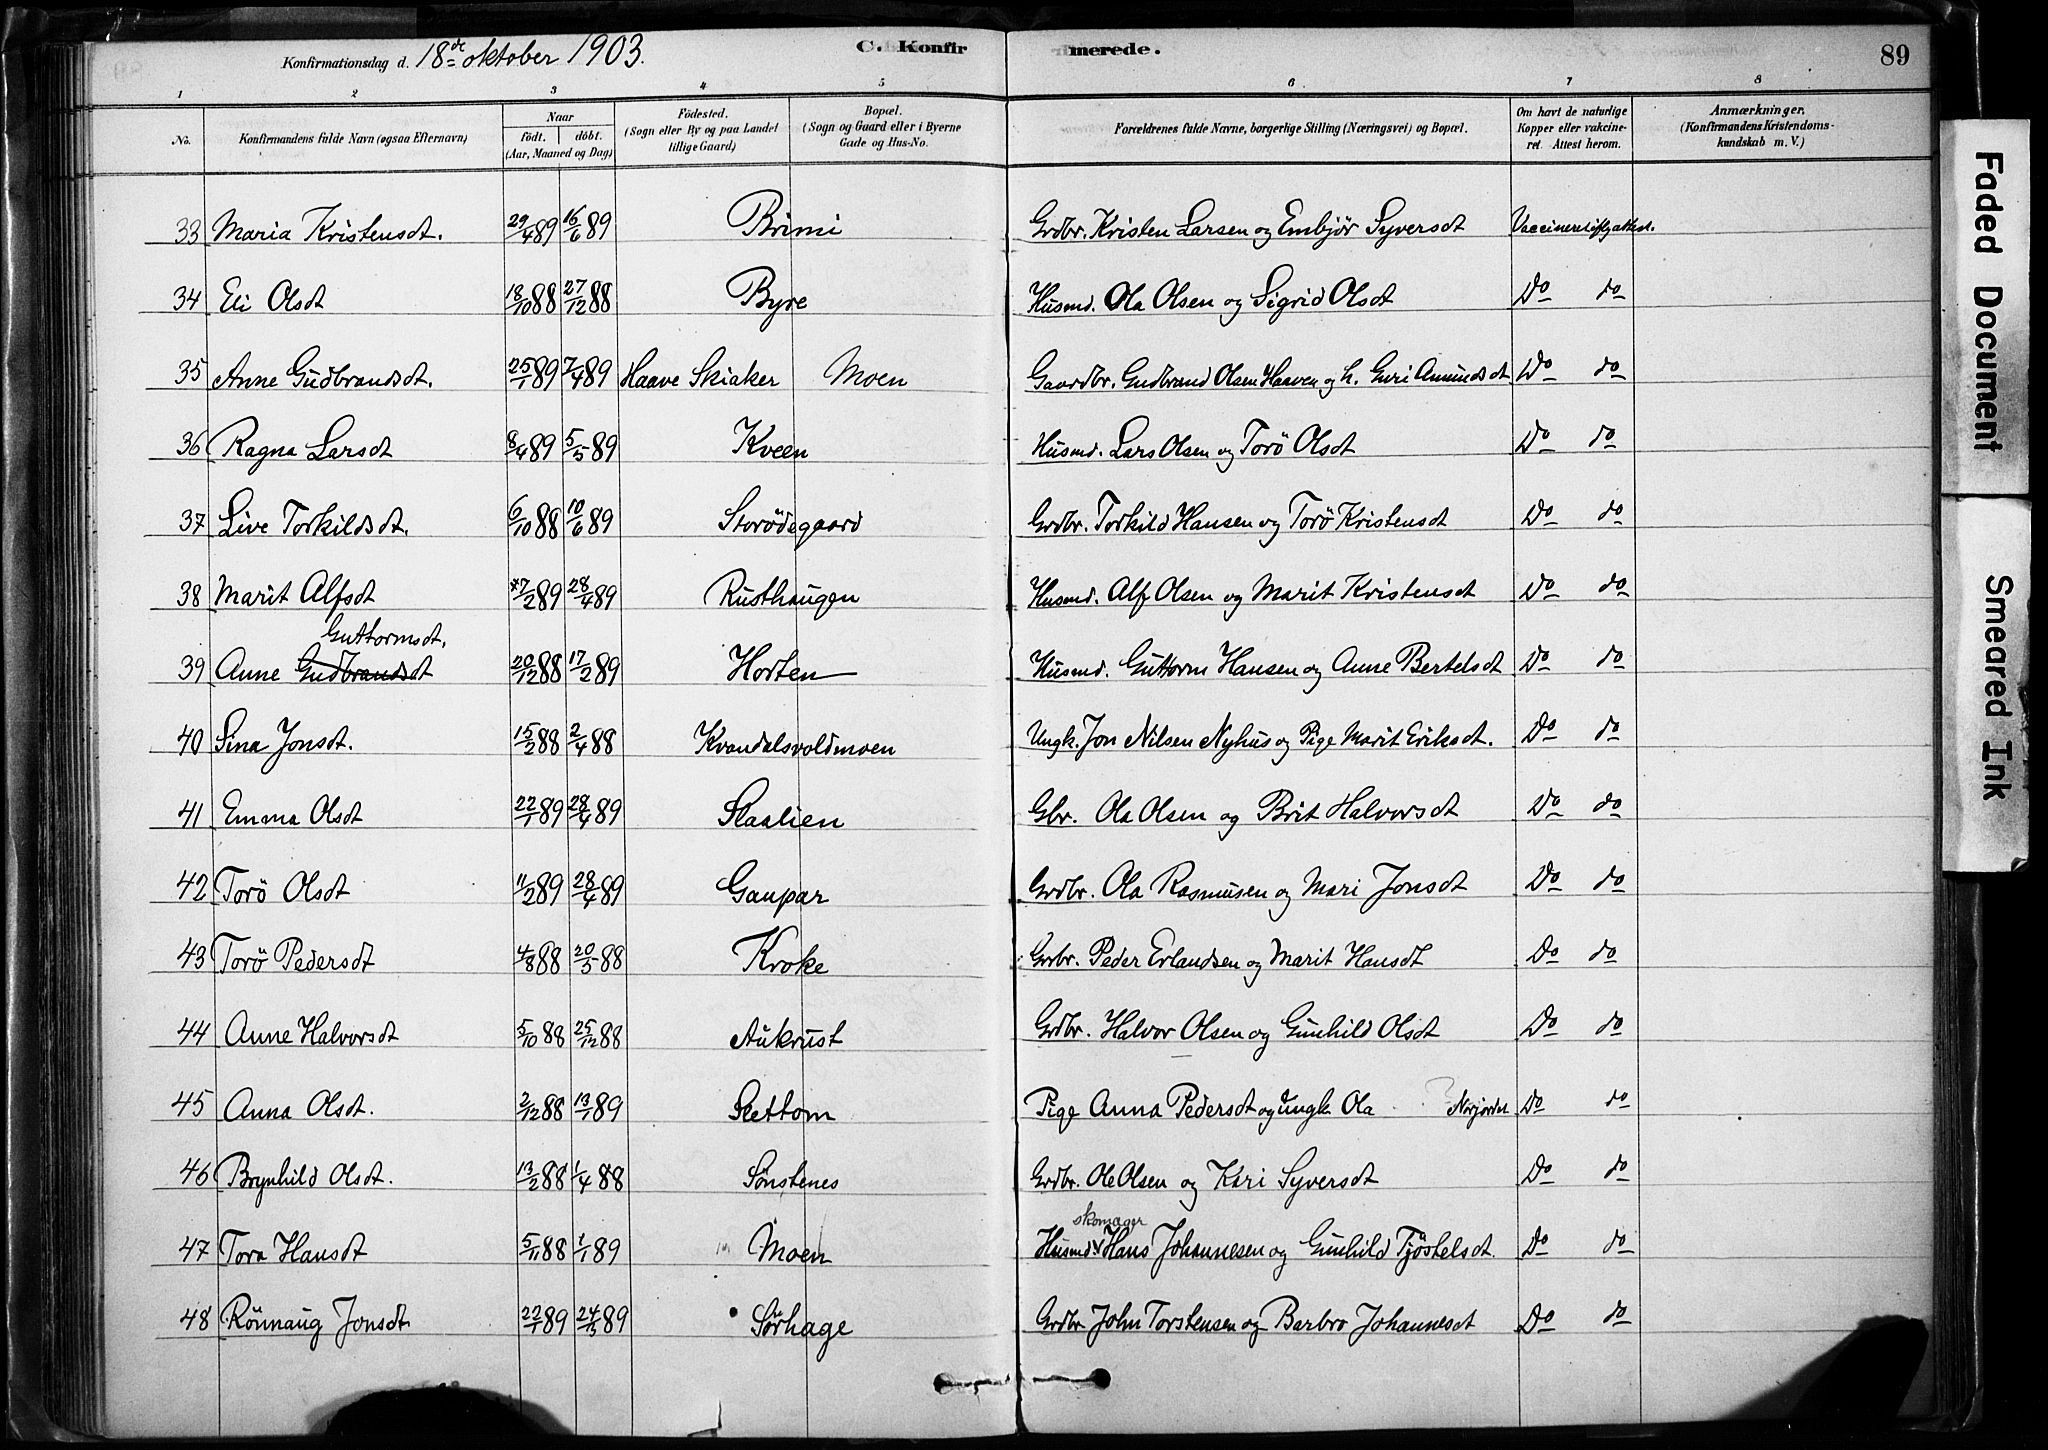 Konfirmationsdag d. 18de oktober 1903.
C. Konfirmerede.
89
1 2 3 4 5 6 7 8
No.
Konfirmandens fulde Navn (ogsaa Efternavn)
Naar
födt. döbt.
(Aar, Maaned og Dag)
Födested.
(Sogn eller By og paa Landet
tillige Gaard)
Bopæl.
(Sogn og Gaard eller i Byerne
Gade og Hus-No.
Forældrenes fulde Navne, borgerlige Stilling (Næringsvei) og Bopæl.
Om havt de naturlige
Kopper eller vakcineret.
Attest herom.
Anmærkninger.
(Konfirmandens Kristendomskundskab
m. V.)
33 Maria Kristensdt. 29/4 89 16/6 89 Brimi Grdbr. Kristen Larsen og Embjør Syversdt Vaccineret iflg attest.
34 Eli Olsdt 18/10 88 27/12 88 Byre Husmd. Ola Olsen og Sigrid Olsdt Do do
35 Anne Gudbrandsdt. 25/1 89 7/4 89 Haave Skiaker Moen Gaardbr. Gudbrand Olsen Haaven og h. Guri Amundsdt Do do
36 Ragna Larsdt 8/4 89 5/5 89 Kveen Husmd. Lars Olsen og Torö Olsdt Do do
37 Live Torkildsdt. 6/10 88 10/6 89 Storödegaard Grdbr. Torkild Hansen og Torö Kristensdt Do do
38 Marit Alfsdt 7/2 89 28/4 89 Rusthaugen Husmd. Alf Olsen og Marit Kristensdt Do do
Guttormsdt.
39 Anne Gudbrandsdt 20/12 88 17/2 89 Horten Husmd. Guttorm Hansen og Anne Bertelsdt Do do
40 Sina Jonsdt. 15/2 88 2/4 88 Kvandalsvoldmoen Ungk. Jon Nilsen Nyhus og Pige Marit Eriksdt. Do do
41 Emma Olsdt 22/1 89 28/4 89 Slaalien Gbr. Ola Olsen og Brit Halvorsdt Do do
42 Torö Olsdt 11/2 89 28/4 89 Gaupar Grdbr. Ola Rasmusen og Mari Jonsdt Do do
43 Torö Pedersdt 4/8 88 20/5 88 Kroke Grbr. Peder Erlandsen og Marit Hansdt Do do
44 Anne Halvorsdt 5/10 88 25/12 88 Aukrust Grdbr. Halvor Olsen og Gunhild Olsdt Do do
45 Anna Olsdt. 2/12 88 13/1 89 Slettom Pige Anna Pedersdt og Ungk Ola Norjordet Do do
46 Brynhild Olsdt. 13/2 88 1/4 88 Sönstenes Grdbr. Ole Olsen og Kari Syversdt Do do
skomager
47 Tora Hansdt 5/11 88 1/1 89 Moen Husmd. Hans Johannesen og Gunhild Tjöstelsdt. Do do
48 Rönnaug Jonsdt 22/1 89 24/3 89 Sörhage Grdbr. John Torstensen og Barbro Johannesdt Do do
Faded Document
Smeared Ink